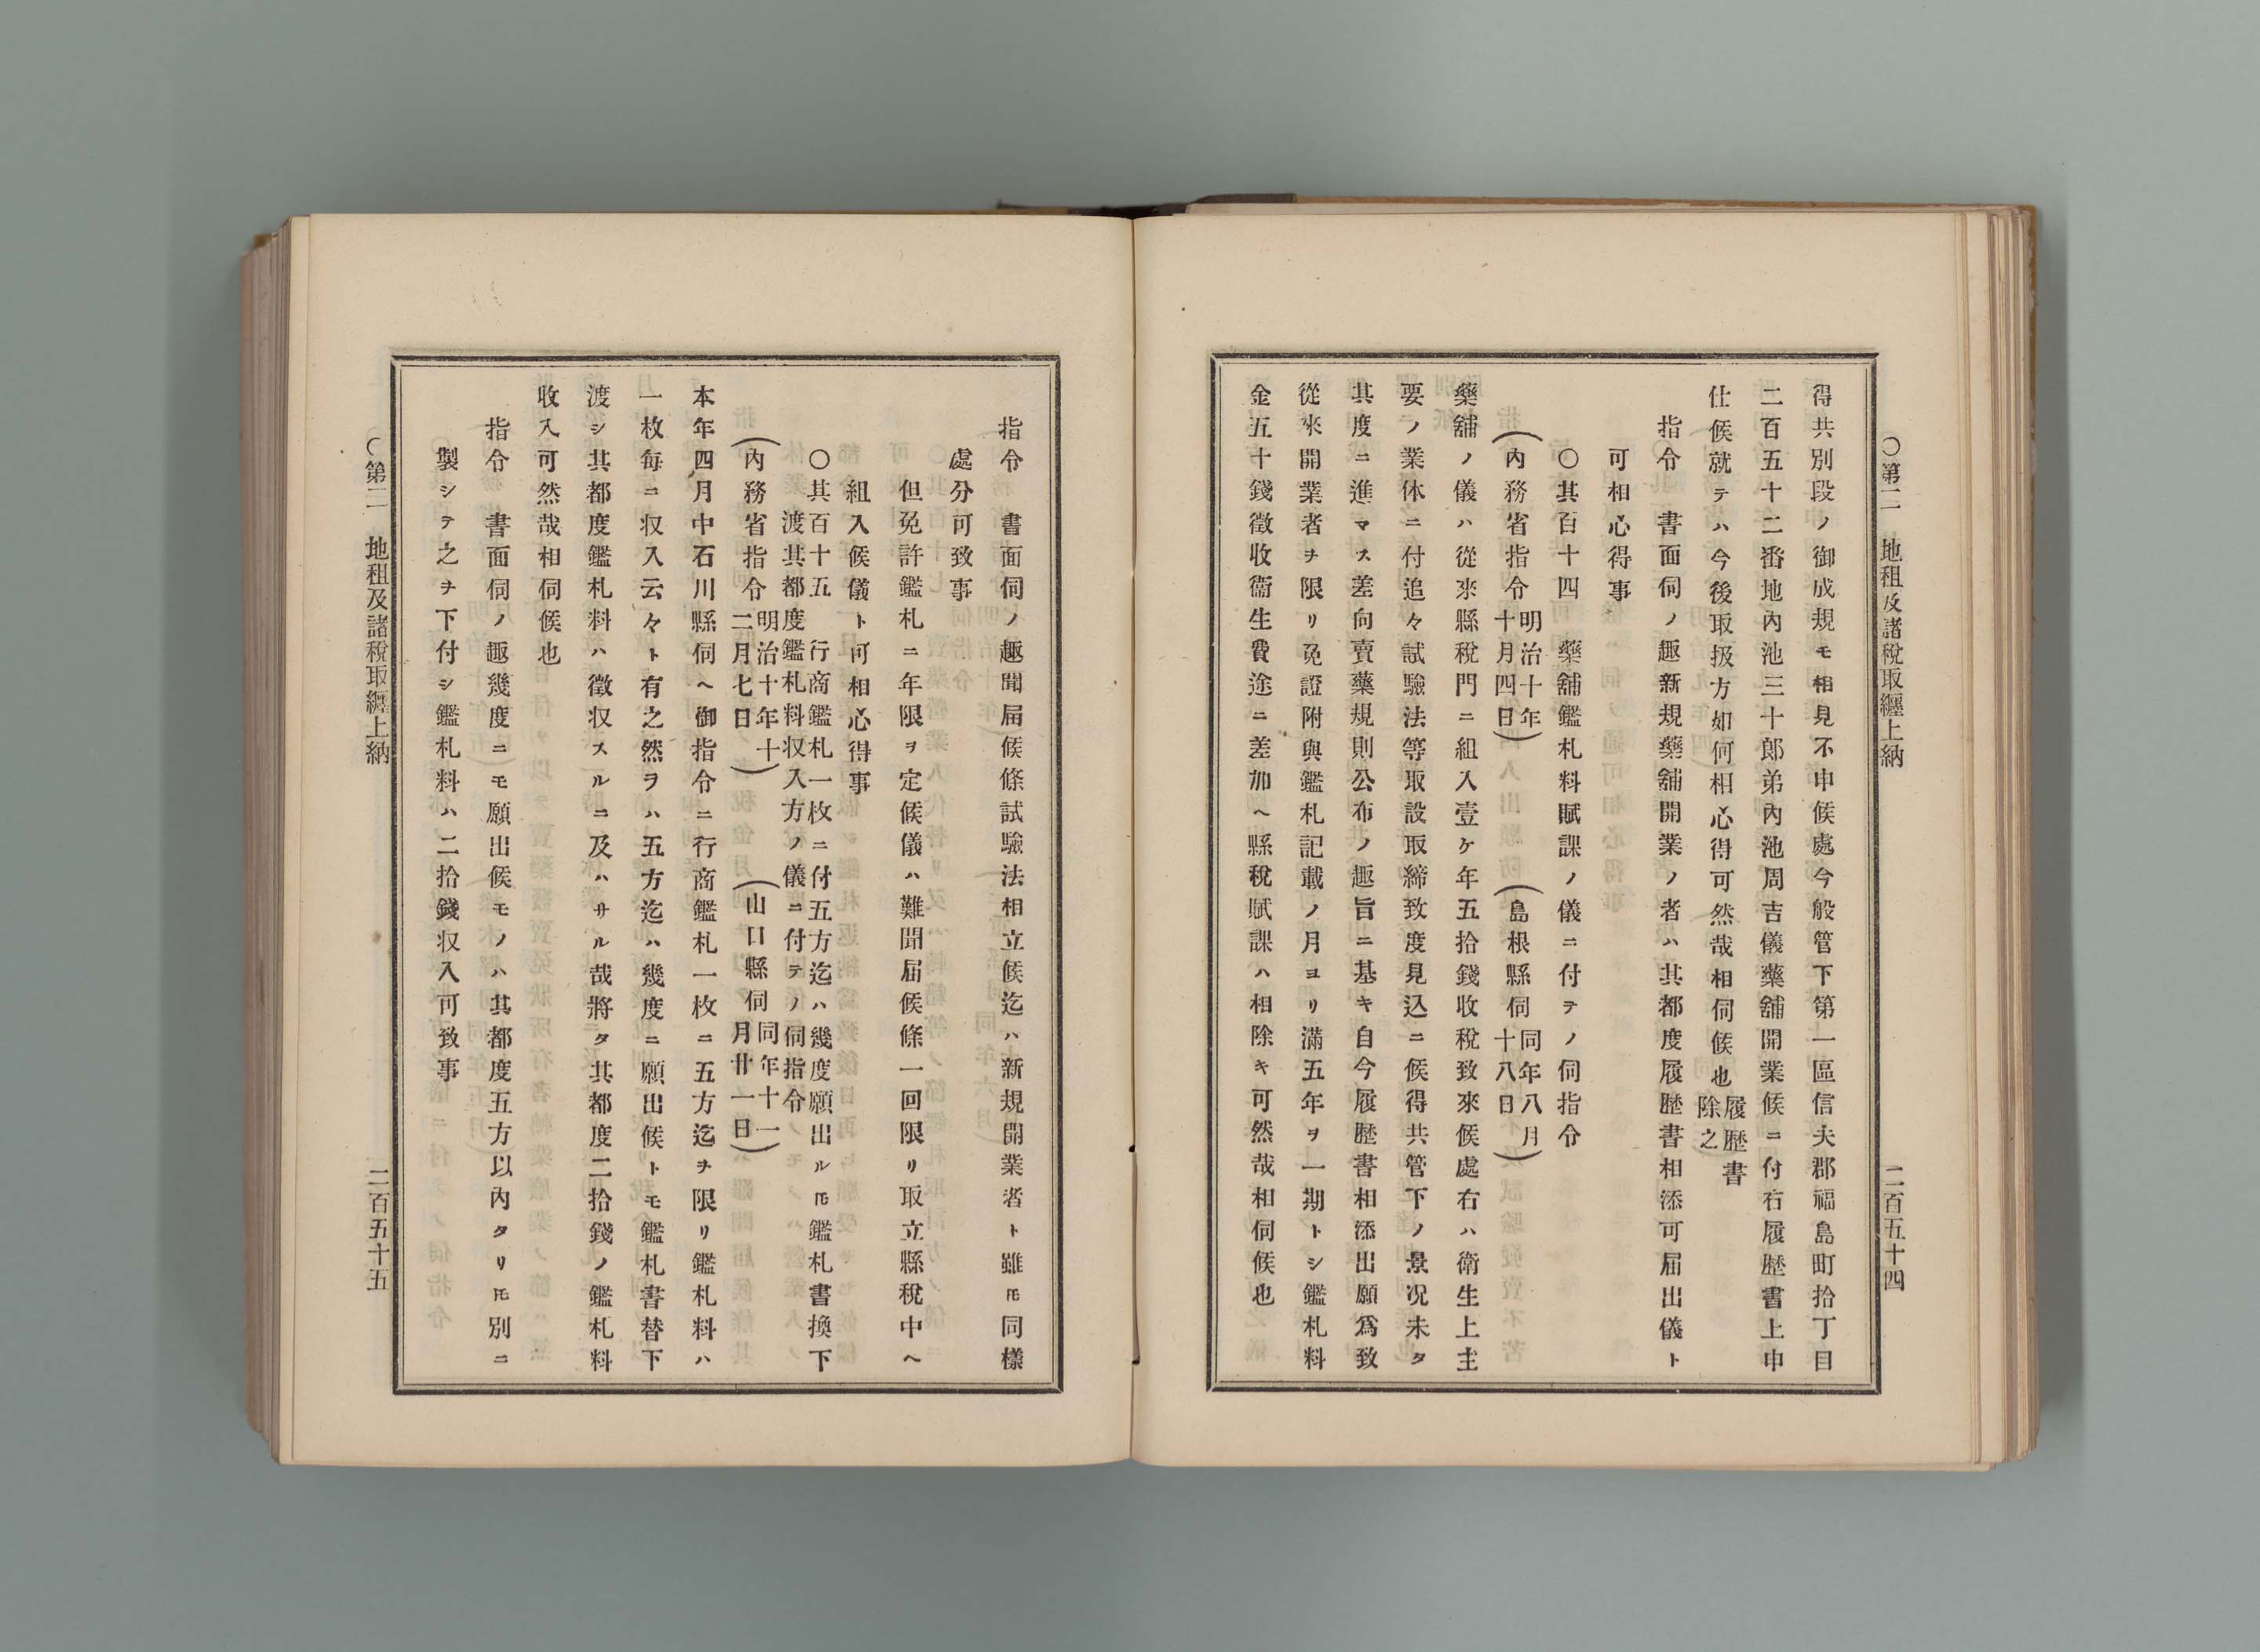 〇第二　地租及諸稅取纒上納　二百五十四
得共別段ノ御成規モ相見不申候處今般管下第一區信夫郡福島町拾丁目
二百五十二番地內池三十郎弟內池周吉儀藥舖開業候ニ付右履歷書上申
仕候就テハ今後取扱方如何相心得可然哉相伺候也履歷書除之
指令　書面伺ノ趣新規藥舖開業ノ者ハ其都度履歷書相添可届出儀ト
可相心得事
〇其百十四　藥舖鑑札料賦課ノ儀ニ付テノ伺指令
（內務省指令明治十年十月四日）　（島根縣伺同年八月十八日）
藥舖ノ儀ハ從來縣稅門ニ組入壹ケ年五拾錢收稅致來候處右ハ衛生上主
要ノ業休ニ付追々試驗法等取設取締致度見込ニ候得共管下ノ景況未タ
其度ニ進マス差向賣藥規則公布ノ趣旨ニ基キ自今履歷書相添出願爲致
從來開業者ヲ限リ免證附與鑑札記載ノ月ヨリ滿五年ヲ一期トシ鑑札料
金五十錢徵收衞生費途ニ差加ヘ縣稅賦課ハ相除キ可然哉相伺候也
指令　書面伺ノ趣聞届候條試驗法相立候迄ハ新規開業者ト雖𪜈同樣
處分可致事
但免許鑑札ニ年限ヲ定候儀ハ難聞届候條一回限リ取立縣稅中ヘ
組入候儀ト可相心得事
〇其百十五　行商鑑札一枚ニ付五方迄ハ幾度願出ル𪜈鑑札書換下
渡其都度鑑札料収入方ノ儀ニ付テノ伺指令
（內務省指令明治十年十二月七日）　（山口縣伺同年十一月廿一日）
本年四月中石川縣伺ヘ御指令ニ行商鑑札一枚ニ五方迄ヲ限リ鑑札料ハ
一枚每ニ収入云々ト有之然ヲハ五方迄ハ幾度ニ願出候トモ鑑札書替下
渡シ其都度鑑札料ハ徵収スルニ及ハサル哉將タ其都度二拾錢ノ鑑札料
收入可然哉相伺候也
指令　書面伺ノ趣幾度ニモ願出候モノハ其都度五方以內タリ𪜈別ニ
製シテ之ヲ下付シ鑑札料ハ二拾錢収入可致事
〇第二　地租及諸稅取纒上納　二百五十五